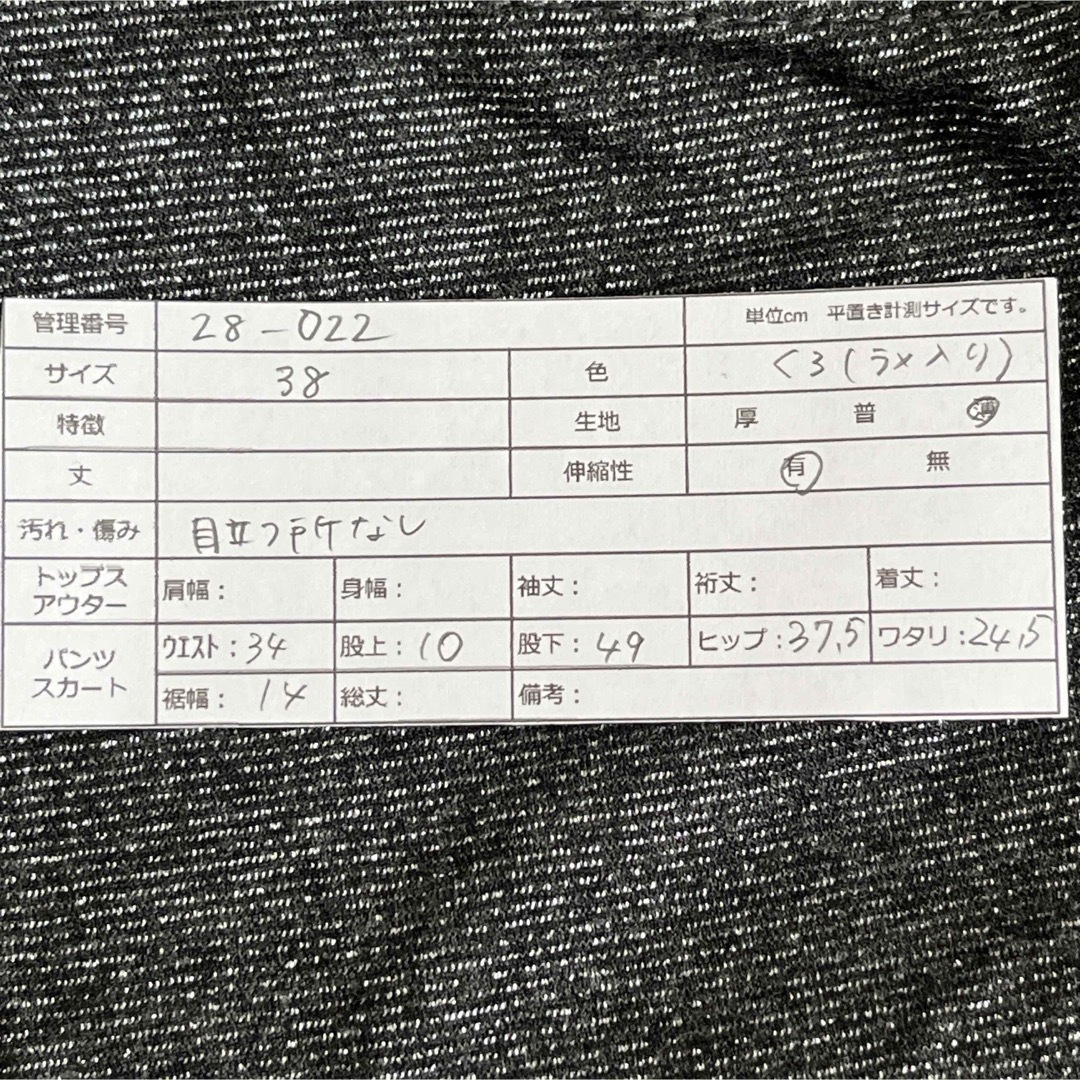 管理番号 28-022 単位cm 平置き計測サイズです。
サイズ 38 色 くろ(ラメ入り)
特徴 生地 厚 普 薄
丈 伸縮性 有 無
汚れ・傷み 目立つ所なし
トップス アウター 肩幅： 身幅： 袖丈： 裄丈： 着丈：
パンツ スカート ウエスト：34 股上：10 股下：49 ヒップ：37,5 ワタリ：24,5
裾幅：14 総丈： 備考：